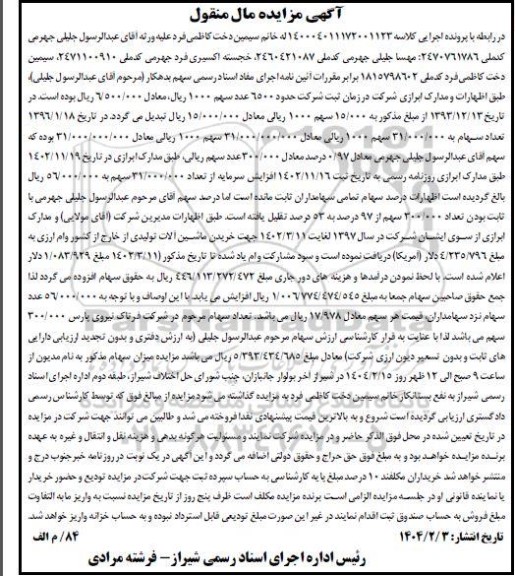 آگهی مزایده مال منقول
در رابطه با پرونده اجرایی کلاسه ۱۴۰۰۰۴۰۱۱۱۷۲۰۰۱۱۲۳ له خانم سیمین دخت کاظمی فرد علیه ورثه آقای عبدالرسول جلیلی جهرمی
کدملی ۲۴۷۰۷۶۱۷۸۶: مهسا جلیلی جهرمی کدملی ۲۴۶۰۴۲۱۰۸۷، خجسته اکسیری فرد جهرمی کدملی ۲۴۷۱۱۰۰۹۱۰، سیمین
دخت کاظمی فرد کدملی ۱۸۱۵۷۹۸۶۰۲ برابر مقررات آئین نامه اجرای مفاد اسناد رسمی سهم بدهکار (مرحوم آقای عبدالرسول جلیلی)،
طبق اظهارات و مدارک ابرازی شرکت در زمان ثبت شرکت حدود ۶۵۰۰ عدد سهم ۱۰۰۰ ریال، معادل ۶/۵۰۰/۰۰۰ ریال بوده است. در
تاریخ ۱۳۹۳/۱۲/۱۳ از مبلغ مذکور به ۱۵/۰۰۰ سهم ۱۰۰۰ ریالی معادل ۱۵/۰۰۰/۰۰۰ ریال تبدیل می گردد. در تاریخ ۱۳۹۶/۱/۱۸
تعداد سهام به ۳۱/۰۰۰/۰۰۰ سهم ۱۰۰۰ ریالی معادل ۳۱/۰۰۰/۰۰۰/۰۰۰ سهم ۱۰۰۰ ریالی معادل ۳۱/۰۰۰/۰۰۰/۰۰۰ بوده که
سهم آقای عبدالرسول جلیلی جهرمی معادل ۰/۹۷ درصد معادل ۳۰۰/۰۰۰ عدد سهم ریالی، طبق مدارک ابرازی در تاریخ ۱۴۰۲/۱۱/۱۹
طبق مدارک ابرازی روزنامه رسمی به تاریخ ثبت ۱۴۰۲/۱۱/۱۶ افزایش سرمایه از تعداد ۳۱/۰۰۰/۰۰۰ سهم به ۵۶/۰۰۰/۰۰۰ ریال
بالغ گردیده است اظهارات درصد سهام تمامی سهامداران ثابت مانده است اما درصد سهم آقای مرحوم عبدالرسول جلیلی جهرمی با
ثابت بودن تعداد ۳۰۰/۰۰۰ سهم از ۹۷ درصد به ۵۳ درصد تقلیل یافته است. طبق اظهارات مدیرین شرکت (آقای مولایی) و مدارک
ابرازی از سوی ایشان شرکت در سال ۱۳۹۷ لغایت ۱۴۰۲/۳/۱۱ جهت خریدن ماشین آلات تولیدی از خارج از کشور وام ارزی به
مبلغ ۴/۲۳۵/۷۹۶ دلار (آمریکا) دریافت نموده است و سود مشارکت وام یاد شده تا تاریخ مذکور (۱۴۰۳/۳/۱۱) مبلغ ۱/۰۸۳/۹۲۹ دلار
اعلام شده است. با لحظ نمودن درآمدها و هزینه های دور جاری مبلغ ۴۴۶/۱۱۳/۲۷۲/۴۷۲ ریال به حقوق سهام افزوده می گردد لذا
جمع حقوق صاحبین سهام جمعا به مبلغ ۱/۰۰۶/۷۷۴/۴۷۴/۵۴۵ ریال افزایش می یابد با این اوصاف و با توجه به ۵۶/۰۰۰/۰۰۰ عدد
سهام نزد سهامداران، قیمت هر سهم معادل ۱۷/۹۷۸ ریال می باشد. تعداد سهام مرحوم در شرکت فرتاک نیروی پارس ۳۰۰/۰۰۰
سهم می باشد لذا با عنایت به قرار کارشناسی ارزش سهام مرحوم عبدالرسول جلیلی (به ارزش دفتری و بدون تجدید ارزیابی دارایی
های ثابت و بدون تسعیر دیون ارزی شرکت) معادل مبلغ ۵/۳۹۳/۴۳۴/۶۸۵ ریال می باشد مزایده میزان سهام مذکور به نام مدیون از
ساعت ۹ صبح الی ۱۲ ظهر روز ۱۴۰۴/۲/۱۵ در شیراز آخر بولوار جانبازان، جنب شورای حل اختلاف شیراز، طبقه دوم اداره اجرای اسناد
رسمی شیراز به نفع بستانکار خانم سیمین دخت کاظمی فرد به مزایده گذاشته می شود مزایده از مبالغ فوق که توسط کارشناس رسمی
دادگستری ارزیابی گردیده است شروع و به بالاترین قیمت پیشنهادی نقدا فروخته می شد و طالبین می توانند جهت شرکت در مزایده
در تاریخ تعیین شده در محل فوق الذکر حاضر و در مزایده شرکت نمایند و مسئولیت هرگونه بدهی و هزینه نقل و انتقال و غیره به عهده
برنده مزایده خواهد بود و به مبلغ فوق حق حراج و حقوق دولتی اضافه می گردد و این آگهی در یک نوبت در روزنامه خبر جنوب درج و
منتشر خواهد شد خریداران مکلفند ۱۰ درصد مبلغ پایه کارشناسی به حساب سپرده ثبت جهت شرکت در مزایده تودیع و حضور خریدار
یا نماینده قانونی او در جلسه مزایده الزامی است. برنده مزایده مکلف است ظرف پنج روز از تاریخ مزایده نسبت به واریز مابه التفاوت
مبلغ فروش به حساب صندوق ثبت اقدام نمایند در غیر این صورت مبلغ تودیعی قابل استرداد نبوده و به حساب خزانه واریز خواهد شد.
تاریخ انتشار: ۱۴۰۴/۲/۳
۸۴/ م الف
رئیس اداره اجرای اسناد رسمی شیراز- فرشته مرادی